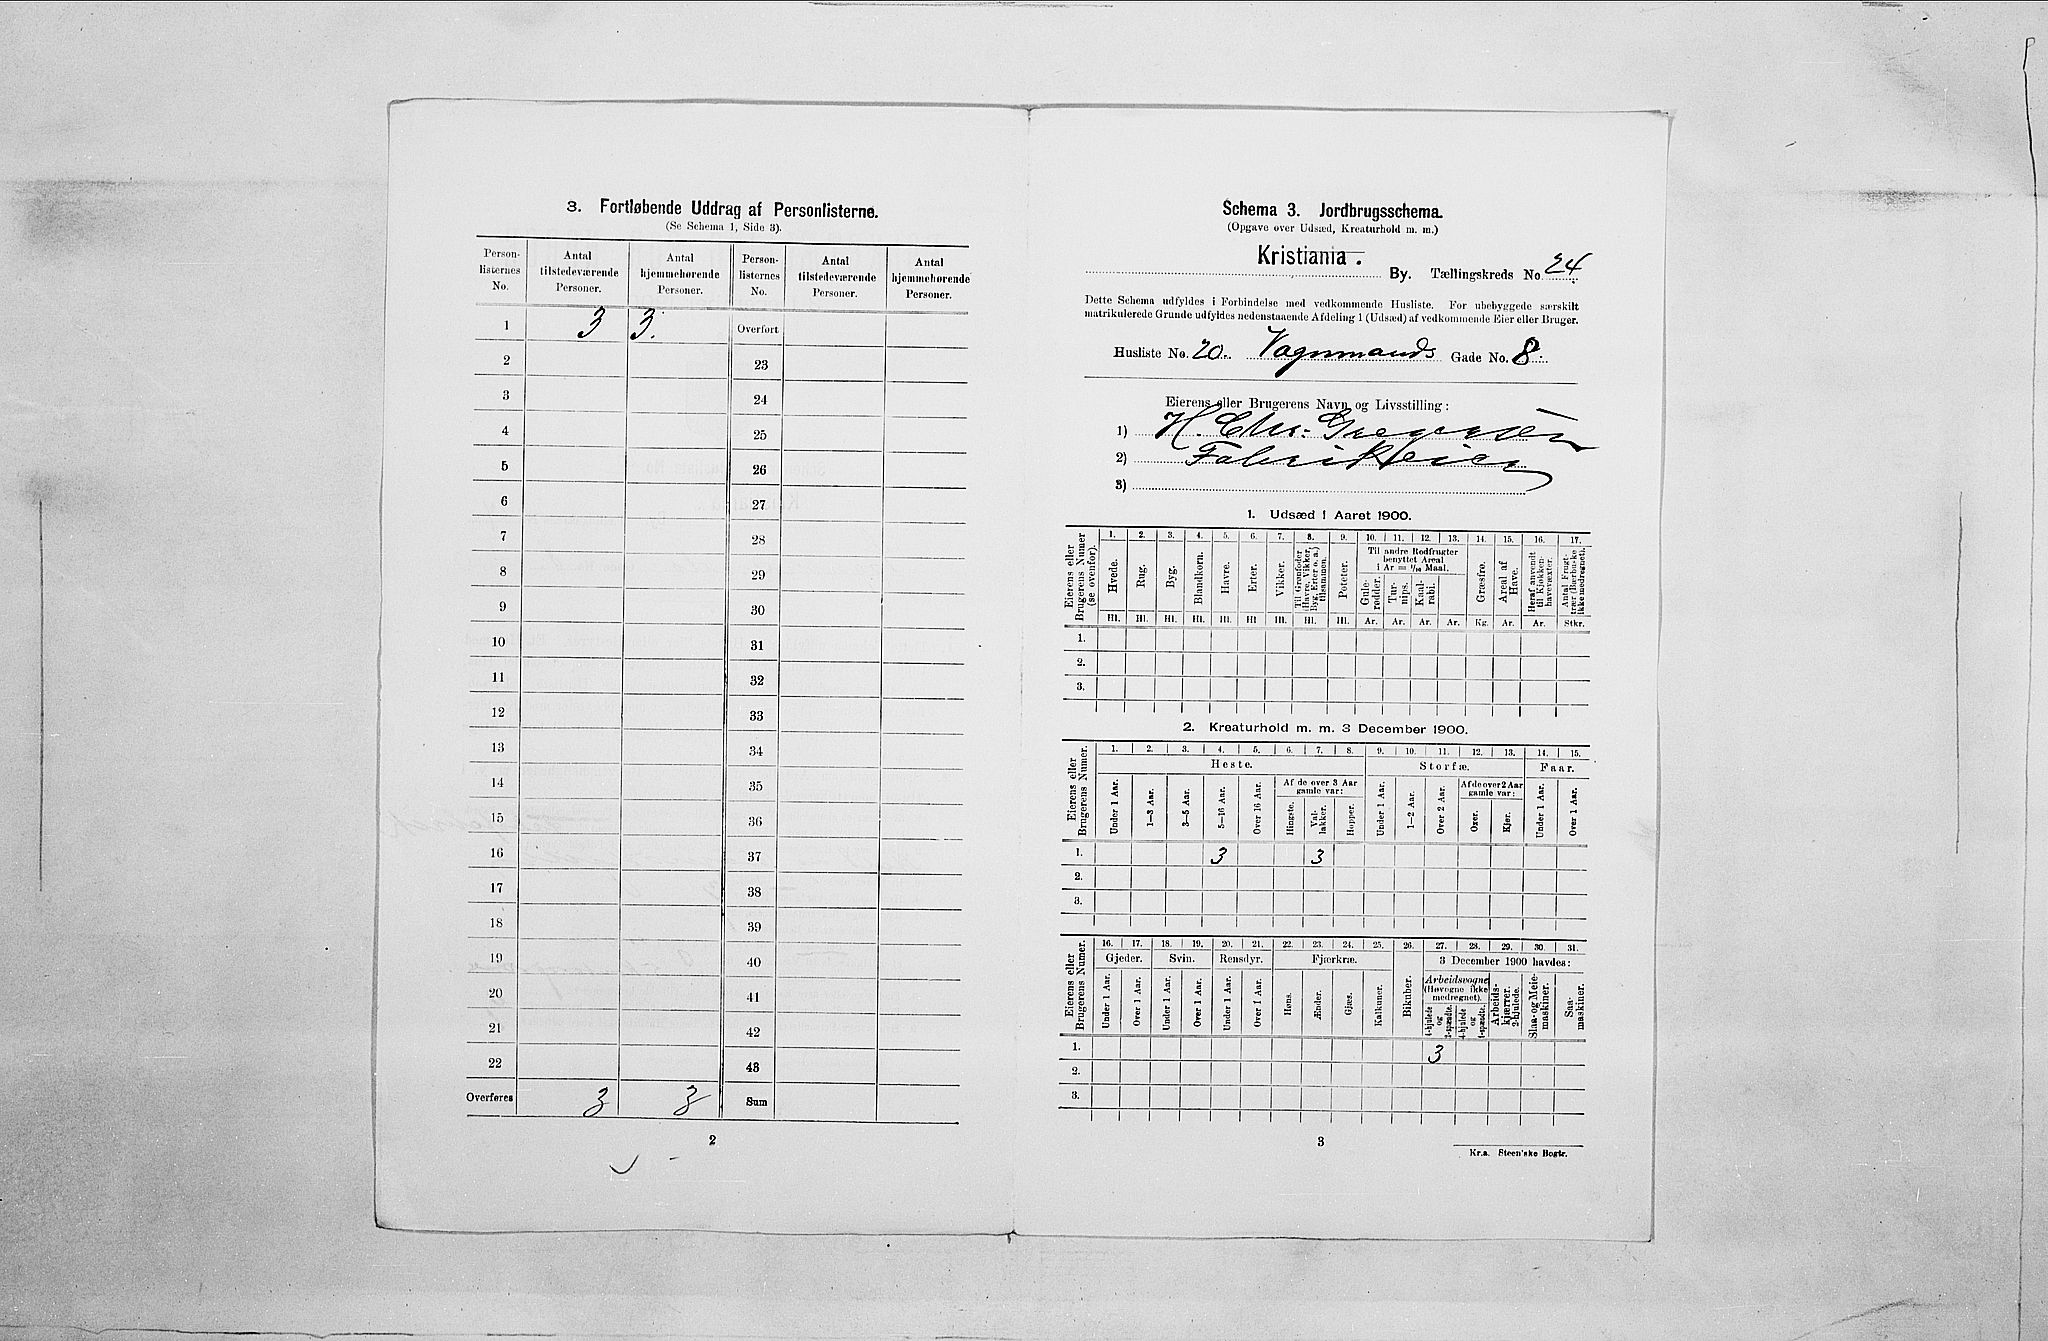 3. Fortløbende Uddrag af Personlisterne.
(Se Schema 1, Side 3).
Person-listernes No. | Antal tilstedeværende Personer. | Antal hjemmehørende Personer. | Person-listernes No. | Antal tilstedeværende Personer. | Antal hjemmehørende Personer.
1 | 3 | 3. | Overført
2 | 23
3 | 24
4 | 25
5 | 26
6 | 27
7 | 28
8 | 29
9 | 30
10 | 31
11 | 32
12 | 33
13 | 34
14 | 35
15 | 36
16 | 37
17 | 38
18 | 39
19 | 40
20 | 41
21 | 42
22 | 43
Overføres | 3 | 3 | Sum
2
Schema 3. Jordbrugsschema.
(Opgave over Udsæd, Kreaturhold m. m.)
Kristiania. By. Tællingskreds No. 24
Dette Schema udfyldes i Forbindelse med vedkommende Husliste. For ubebyggede særskilt
matrikulerede Grunde udfyldes nedenstaaende Afdeling 1 (Udsæd) af vedkommende Eier eller Bruger.
Husliste No. 20. Vognmands Gade No. 8.
Eierens eller Brugerens Navn og Livsstilling:
1) H. Chr. Gregersen
2) Fabrikkeier
3)
1. Udsæd i Aaret 1900.
Eierens eller Brugerens Numer (se ovenfor).
1. 2. 3. 4. 5. 6. 7. 8. 9. 10. 11. 12. 13. 14. 15. 16. 17.
Hvede. Rug. Byg. Blandkorn. Havre. Erter. Vikker. Til Grønfoder (Havre, Vikker, Byg, Erter o. a.) tilsammen. Poteter.
Til andre Rodfrugter benyttet Areal i Ar = 1/10 Maal.
Gulerødder. Turnips. Kaalrabi. Græsfrø. Areal af Have. Heraf anvendt til Kjøkkenhavevæxter. Antal Frugttrær (Bærbuske ikke medregnet).
Hl. Hl. Hl. Hl. Hl. Hl. Hl. Hl. Hl. Ar. Ar. Ar. Ar. Kg. Ar. Ar. Stkr.
1.
2.
3.
2. Kreaturhold m. m. 3 December 1900.
Eierens eller Brugerens Numer.
1. 2. 3. 4. 5. 6. 7. 8. 9. 10. 11. 12. 13. 14. 15.
Heste. Storfæ. Faar.
Af de over 3 Aar gamle var: Af de over 2 Aar gamle var:
Under 1 Aar. 1–3 Aar. 3–5 Aar. 5–16 Aar. Over 16 Aar. Hingste. Vallakker. Hopper. Under 1 Aar. 1–2 Aar. Over 2 Aar. Oxer. Kjør. Under 1 Aar. Over 1 Aar.
1. 3 3
2.
3.
Eierens eller Brugerens Numer.
16. 17. 18. 19. 20. 21. 22. 23. 24. 25. 26. 27. 28. 29. 30. 31.
Gjeder. Svin. Rensdyr. Fjærkræ. Bikuber. 3 December 1900 havdes:
Arbeidsvogne (Høvogne ikke medregnet).
Under 1 Aar. Over 1 Aar. Under 1 Aar. Over 1 Aar. Under 1 Aar. Over 1 Aar. Høns. Ænder. Gjæs. Kalkuner. 4-hjulede og 2-spændte. 4-hjulede og 1-spændte. Arbeidskjærrer. 2-hjulede. Slaa- og Meiemaskiner. Saamaskiner.
1. 3
2.
3.
3
Kr.a. Steen'ske Bogtr.